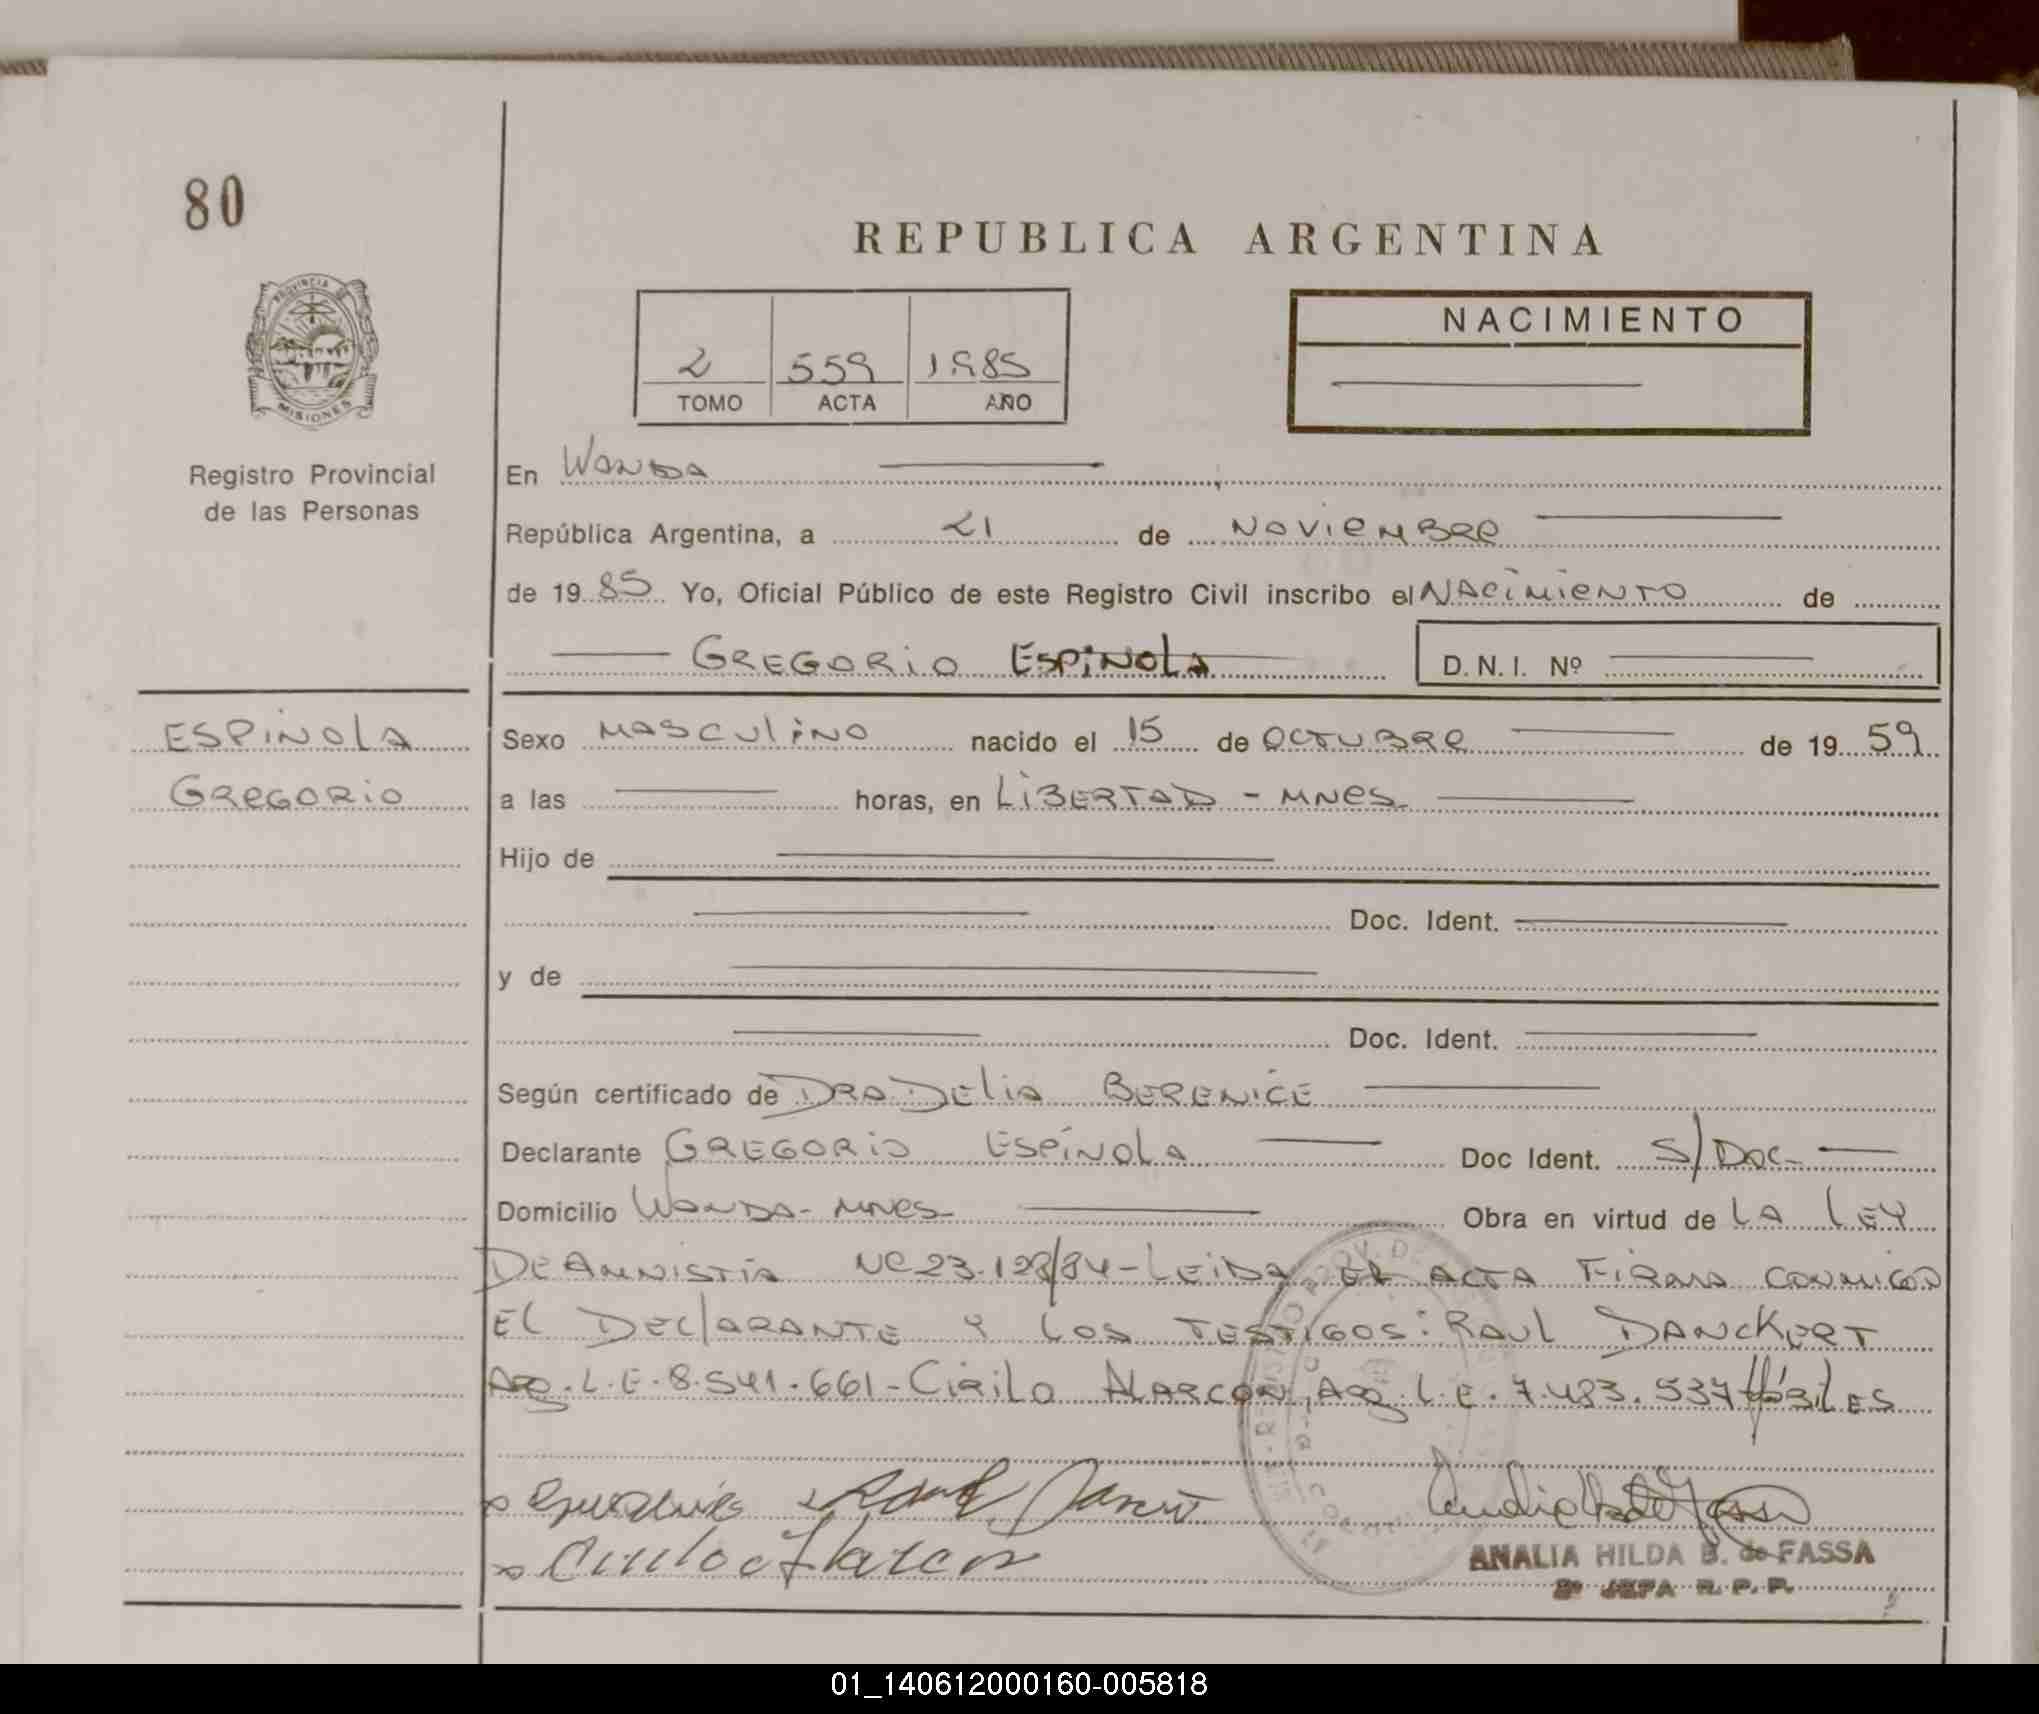 80
REPUBLICA ARGENTINA
PROVINCIA DE
MISIONES
Registro Provincial
de las Personas
2 559 1985
TOMO ACTA AÑO
NACIMIENTO
En WANDA
República Argentina, a 21 de NOVIEMBRE
de 1985 Yo, Oficial Público de este Registro Civil inscribo el NACIMIENTO de
GREGORIO ESPINOLA D.N.I. Nº
ESPINOLA
GREGORIO
Sexo MASCULINO nacido el 15 de OCTUBRE de 1959
a las horas, en LIBERTAD - MNES.
Hijo de
Doc. Ident.
y de
Doc. Ident.
Según certificado de DRA DELIA BERENICE
Declarante GREGORIO ESPÍNOLA Doc Ident. S/DOC-
Domicilio WANDA - MNES- Obra en virtud de LA LEY
DE AMNISTIA Nº 23.128/84 - LEIDA EL ACTA FIRMA CONMIGO
EL DECLARANTE Y LOS TESTIGOS: RAUL DANCKERT
ARG. L.E. 8.541.661 - CIRILO ALARCON, ARG. L.E. 7.483.537 HÁBILES
Cirilo Alarcon
ANALIA HILDA B. de FASSA
2º JEFA R.P.P.
01_140612000160-005818